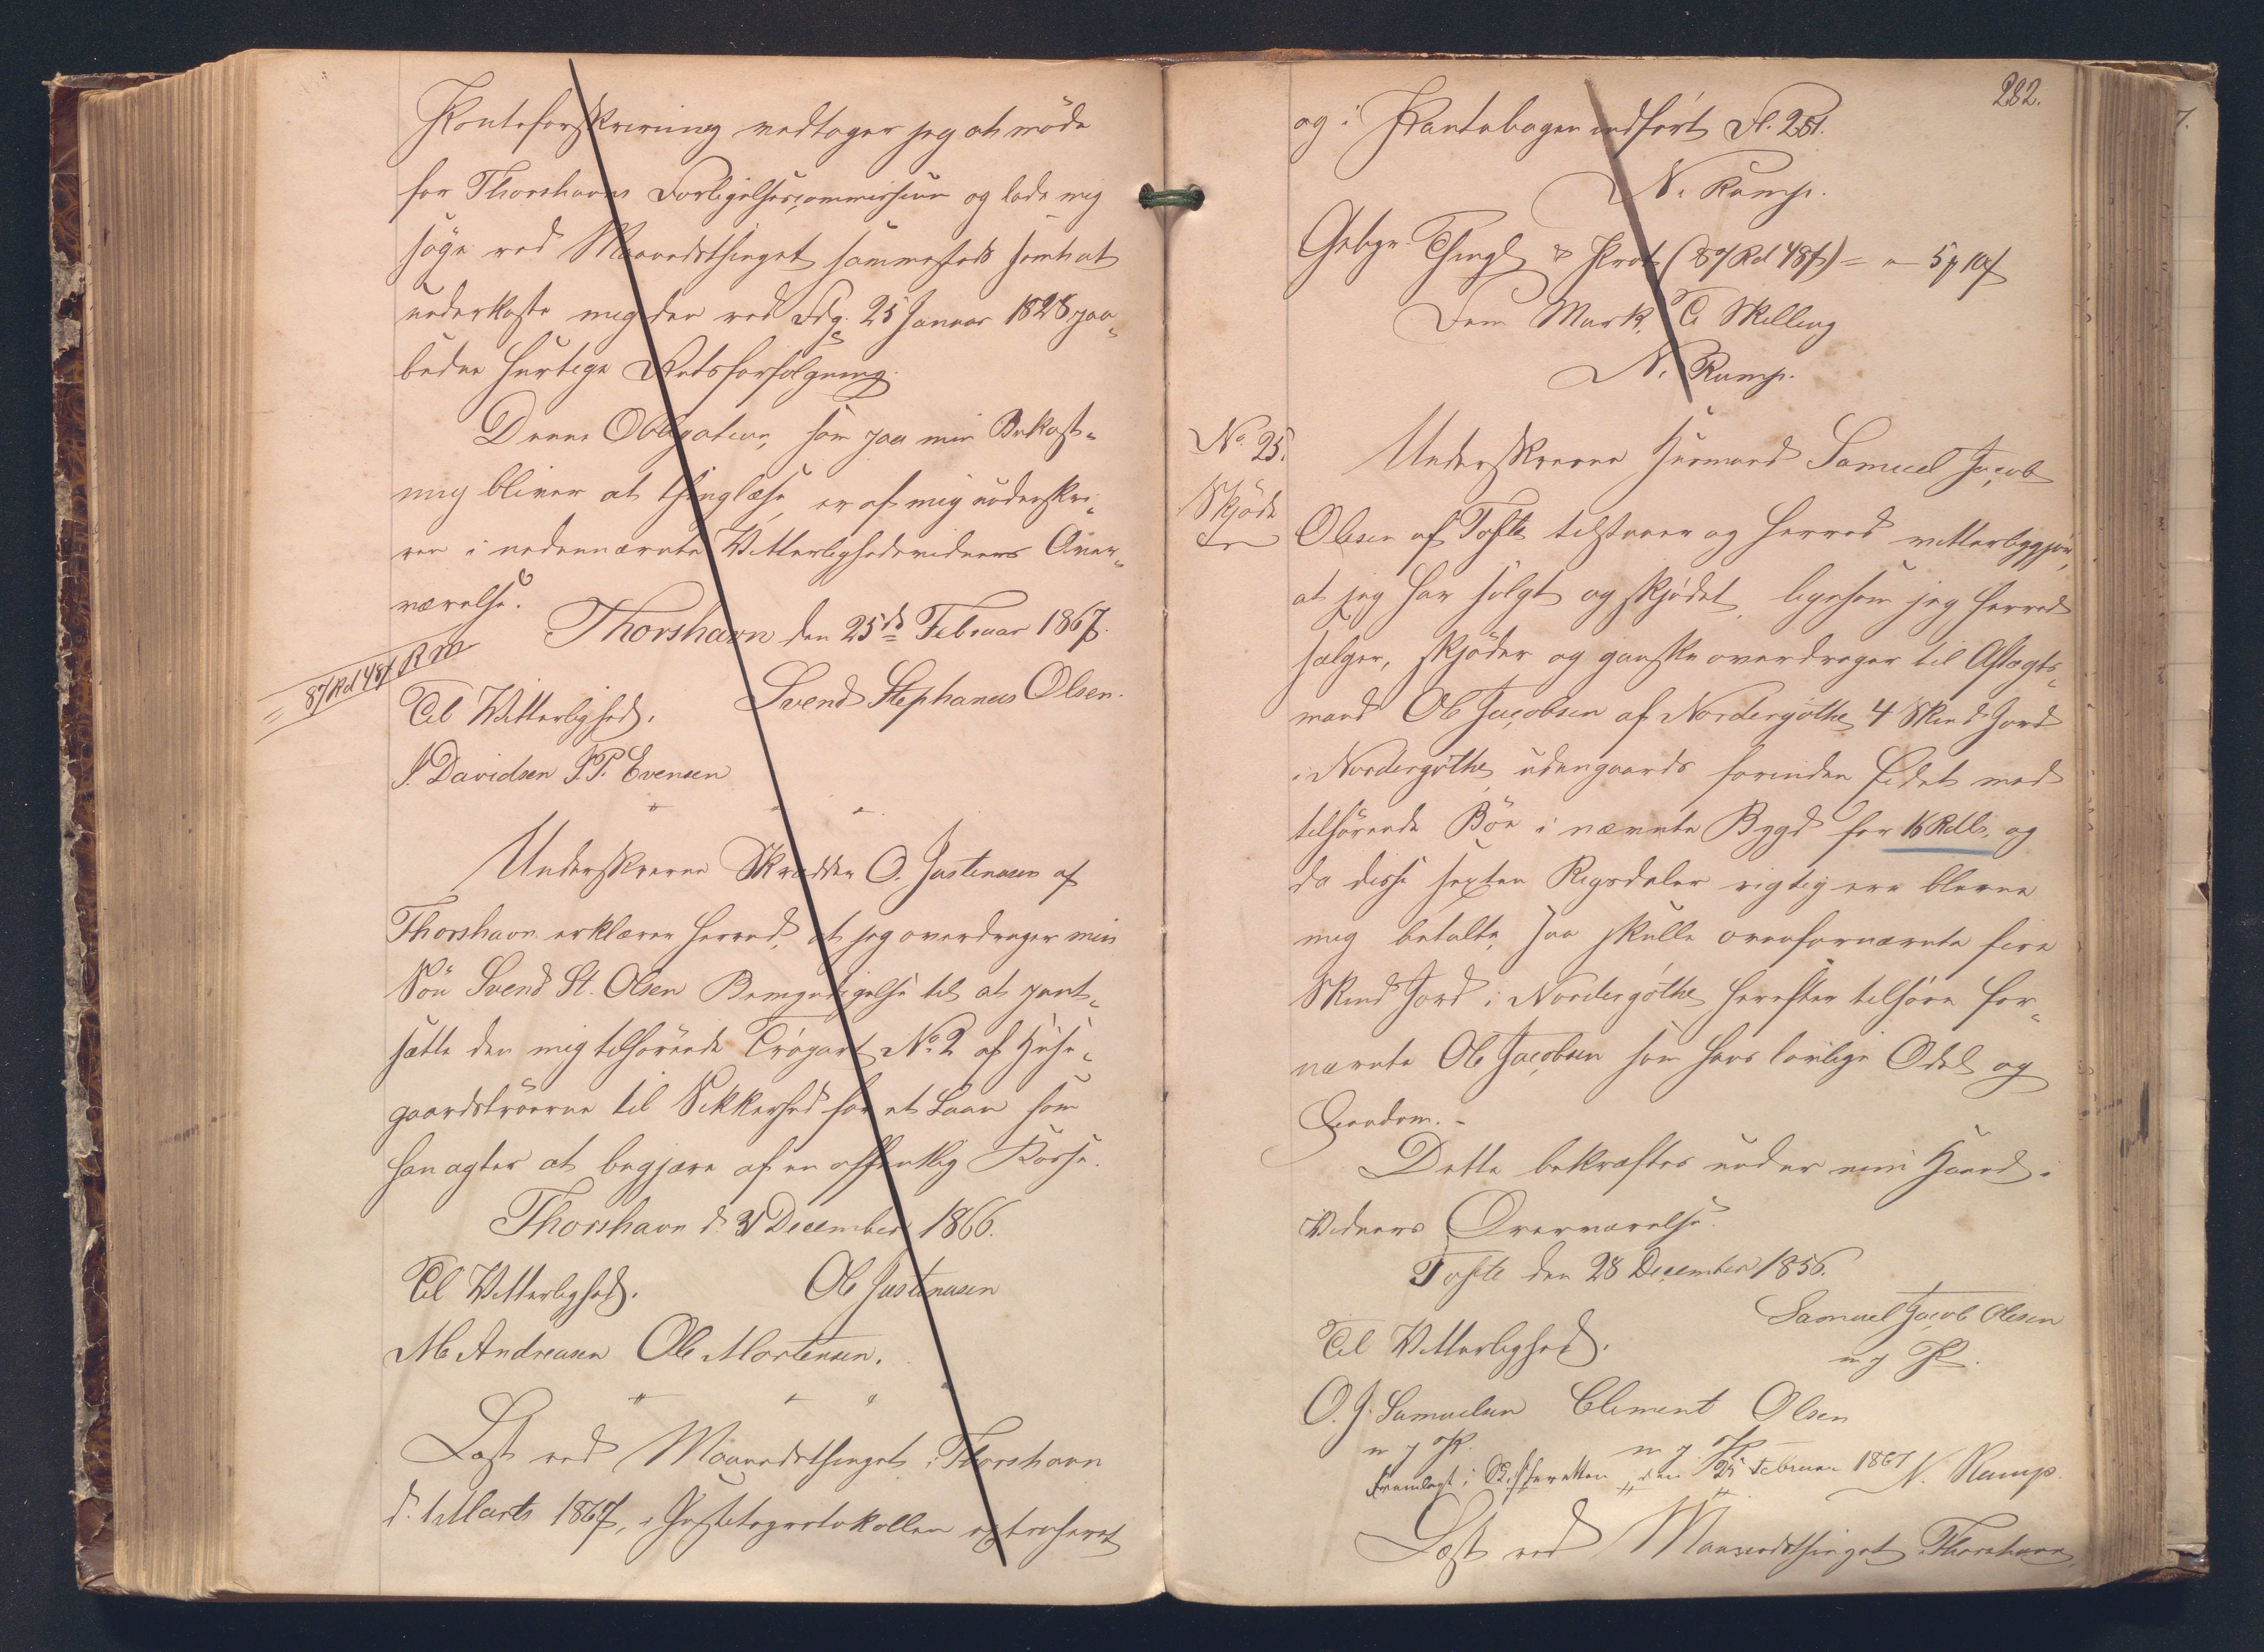 Renteforskrivning vedtager jeg at möde
for Thorshavns Forligelsescommission og lade mig
söge ved Maanedsthinget sammesteds samt at
underkaste mig den ved Fdg. 25 Januar 1828 paa„
budne hurtige Retsforfølgning.
Denne Obligation, som paa min Bekost„
ning bliver at thinglæse, er af mig underskre„
ven i nedennævnte Vitterlighedsvidners Over„
værelse.
Thorshavn den 25de Februar 1867.
87 Rd 48 f R M
Svend Stephanus Olsen.
Til Vitterlighed.
J. Davidsen P. Evensen
Underskrevne Skrædder O. Justinussen af
Thorshavn erklærer herved, at jeg overdrager min
Sön Svend St. Olsen Bemyndigelse til at pant„
sætte den mig tilhörende Trögart No. 2 af Huse„
gaardströerne til Sikkerhed for et Laan som
han agter at begjære af en offentlig Kasse.
Thorshavn d. 31 December 1866.
Til Vitterlighed. Ole Justinusen
M Andreasen Ole Mortensen.
Læst ved Maanedsthinget i Thorshavn
d. 1 Marts 1867, i Justitsprotokollen extraheret
282.
og i Pantebogen indfört Fl. 281.
N. Rump.
Gebyr Thingl & Prot (87 Rd 48 f) = 5 10
Fem Mark, Ti Skilling
N. Rump.
No. 25.
Skjöde
Underskrevne Huusmand Samuel Jacob
Olesen af Tofte tilstaaer og herved vitterliggjör,
at jeg har solgt og skjödet, ligesom jeg herved
sælger, skjöder og ganske overdrager til Aftægts„
mand Ole Jacobsen af Nordergöthe 4 Skind Jord
i Nordergöthe udengaards forinden Eidet med
tilhörende Böe i nævnte Bygd for 16 Rdlr. og
da disse sexten Rigsdaler rigtig ere blevne
mig betalte, saa skulle ovenfornævnte fire
Skind Jord i Nordergöthe herefter tilhöre for„
nævnte Ole Jacobsen som hans lovlige Odel og
Eiendom. -
Dette bekræftes under min Haand i
Vidners Overværelse.
Tofte den 28 December 1856.
Samuel Jacob Olesen
m f P.
Til Vitterlighed.
O. J. Samuelsen Clement Olsen
m f P. m f P.
Fremlagt i Skifteretten den 25 Februar 1867 N. Rump.
Læst ved Maanedsthinget i Thorshavn,